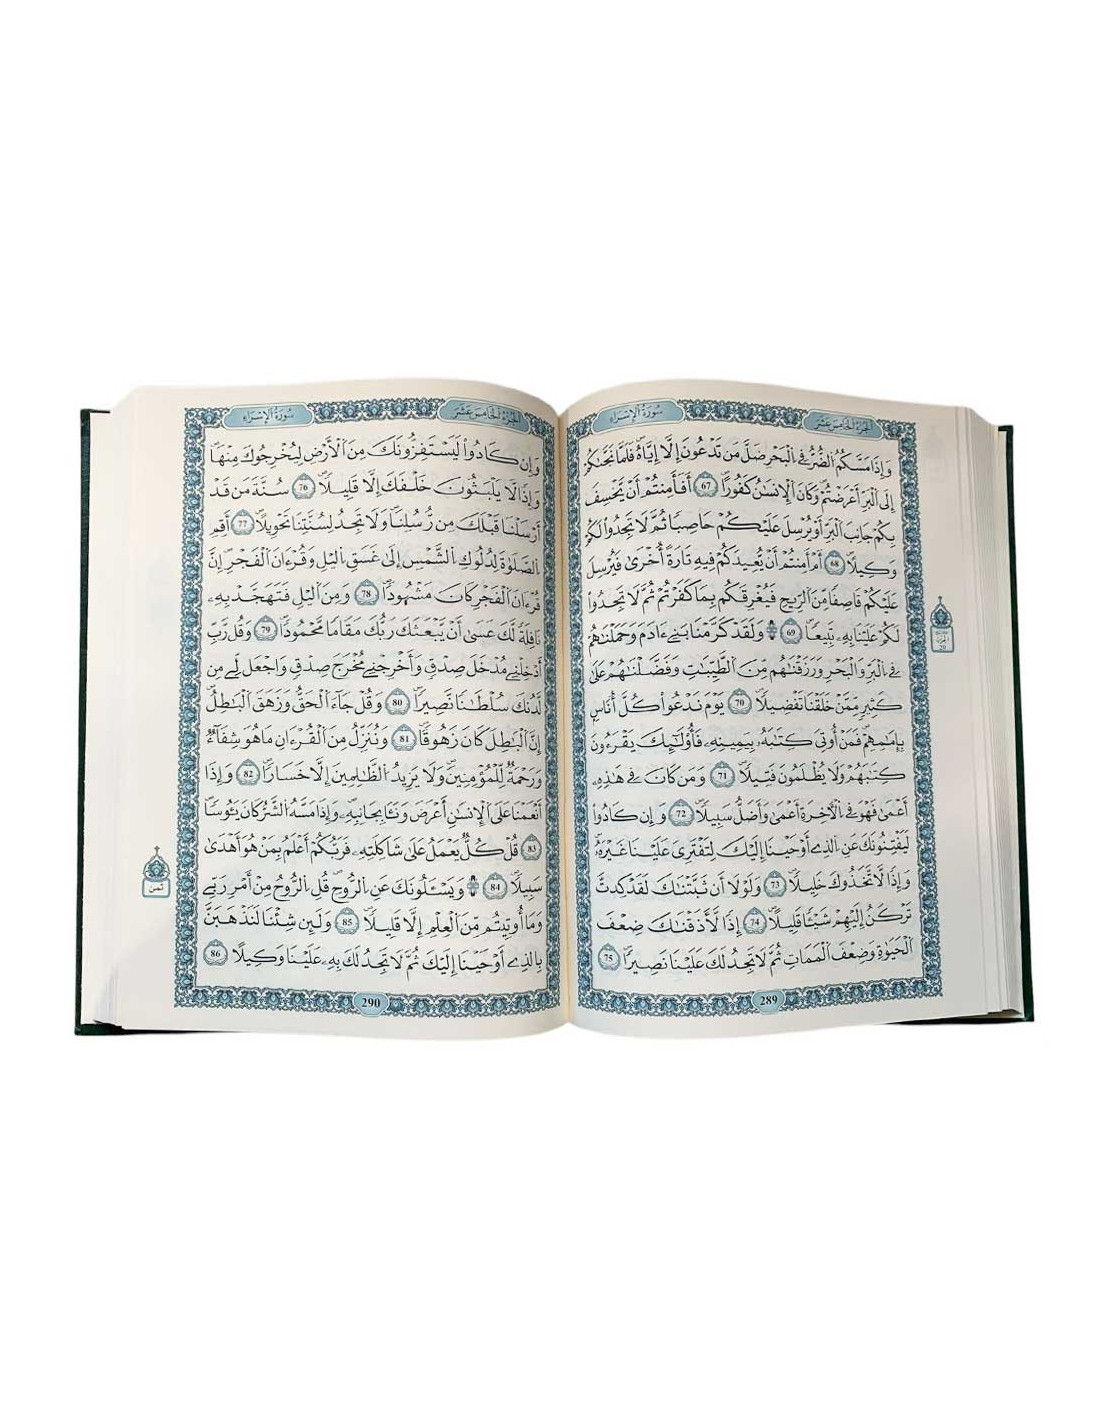 سُورَةُ الْإِسْرَاءِ
الجُزْءُ الخَامِسَ عَشَرَ
وَإِذَا مَسَّكُمُ الضُّرُّ فِي الْبَحْرِ ضَلَّ مَن تَدْعُونَ إِلَّا إِيَّاهُ فَلَمَّا نَجَّىٰكُمُ
إِلَى الْبَرِّ أَعْرَضْتُمْ وَكَانَ الْإِنسَٰنُ كَفُورًا 67 أَفَأَمِنتُمْ أَنْ يَّخْسِفَ
بِكُمْ جَانِبَ الْبَرِّ أَوْ يُرْسِلَ عَلَيْكُمْ حَاصِبًا ثُمَّ لَا تَجِدُوا لَكُمْ
وَكِيلًا 68 أَمَ أَمِنتُمْ أَنْ يُّعِيدَكُمْ فِيهِ تَارَةً أُخْرَىٰ فَيُرْسِلَ
عَلَيْكُمْ قَاصِفًا مِّنَ الرِّيحِ فَيُغْرِقَكُم بِمَا كَفَرْتُمْ ثُمَّ لَا تَجِدُوا
لَكُمْ عَلَيْنَا بِهِۦ تَبِيعًا 69 وَلَقَدْ كَرَّمْنَا بَنِيٓ ءَادَمَ وَحَمَلْنَٰهُمْ
فِي الْبَرِّ وَالْبَحْرِ وَرَزَقْنَٰهُم مِّنَ الطَّيِّبَٰتِ وَفَضَّلْنَٰهُمْ عَلَىٰ
كَثِيرٍ مِّمَّنْ خَلَقْنَا تَفْضِيلًا 70 يَوْمَ نَدْعُوا كُلَّ أُنَاسٍ
بِإِمَٰمِهِمْ فَمَنُ أُوتِيَ كِتَٰبَهُۥ بِيَمِينِهِۦ فَأُوْلَٰٓئِكَ يَقْرَءُونَ
كِتَٰبَهُمْ وَلَا يُظْلَمُونَ فَتِيلًا 71 وَمَن كَانَ فِي هَٰذِهِۦٓ
أَعْمَىٰ فَهُوَ فِي الْأٓخِرَةِ أَعْمَىٰ وَأَضَلُّ سَبِيلًا 72 وَإِن كَادُوا
لَيَفْتِنُونَكَ عَنِ الَّذِيٓ أَوْحَيْنَآ إِلَيْكَ لِتَفْتَرِيَ عَلَيْنَا غَيْرَهُۥ
وَإِذًا لَّاتَّخَذُوكَ خَلِيلًا 73 وَلَوْلَآ أَن ثَبَّتْنَٰكَ لَقَدْ كِدتَّ
تَرْكَنُ إِلَيْهِمْ شَيْـًٔا قَلِيلًا 74 إِذًا لَّأَذَقْنَٰكَ ضِعْفَ
الْحَيَوٰةِ وَضِعْفَ الْمَمَاتِ ثُمَّ لَا تَجِدُ لَكَ عَلَيْنَا نَصِيرًا 75
289
سُورَةُ الْإِسْرَاءِ
الجُزْءُ الخَامِسَ عَشَرَ
وَإِن كَادُوا لَيَسْتَفِزُّونَكَ مِنَ الْأَرْضِ لِيُخْرِجُوكَ مِنْهَا
وَإِذًا لَّا يَلْبَثُونَ خَلْفَكَ إِلَّا قَلِيلًا 76 سُنَّةَ مَن قَدَ
أَرْسَلْنَا قَبْلَكَ مِن رُّسُلِنَا وَلَا تَجِدُ لِسُنَّتِنَا تَحْوِيلًا 77 أَقِمِ
الصَّلَوٰةَ لِدُلُوكِ الشَّمْسِ إِلَىٰ غَسَقِ الَّيْلِ وَقُرْءَانَ الْفَجْرِ إِنَّ
قُرْءَانَ الْفَجْرِ كَانَ مَشْهُودًا 78 وَمِنَ الَّيْلِ فَتَهَجَّدْ بِهِۦ
نَافِلَةً لَّكَ عَسَىٰٓ أَنْ يَّبْعَثَكَ رَبُّكَ مَقَامًا مَّحْمُودًا 79 وَقُل رَّبِّ
أَدْخِلْنِي مُدْخَلَ صِدْقٍ وَأَخْرِجْنِي مُخْرَجَ صِدْقٍ وَاجْعَل لِّي مِن
لَّدُنكَ سُلْطَٰنًا نَّصِيرًا 80 وَقُلْ جَآءَ الْحَقُّ وَزَهَقَ الْبَٰطِلُ
إِنَّ الْبَٰطِلَ كَانَ زَهُوقًا 81 وَنُنَزِّلُ مِنَ الْقُرْءَانِ مَا هُوَ شِفَآءٌ
وَرَحْمَةٌ لِّلْمُؤْمِنِينَ وَلَا يَزِيدُ الظَّٰلِمِينَ إِلَّا خَسَارًا 82 وَإِذَآ
أَنْعَمْنَا عَلَى الْإِنسَٰنِ أَعْرَضَ وَنَـَٔا بِجَانِبِهِۦ وَإِذَا مَسَّهُ الشَّرُّ كَانَ يَـُٔوسًا
83 قُلْ كُلٌّ يَعْمَلُ عَلَىٰ شَاكِلَتِهِۦ فَرَبُّكُمُ أَعْلَمُ بِمَنْ هُوَ أَهْدَىٰ
سَبِيلًا 84 وَيَسْـَٔلُونَكَ عَنِ الرُّوحِ قُلِ الرُّوحُ مِنَ أَمْرِ رَبِّي
وَمَآ أُوتِيتُم مِّنَ الْعِلْمِ إِلَّا قَلِيلًا 85 وَلَئِن شِئْنَا لَنَذْهَبَنَّ
بِالَّذِيٓ أَوْحَيْنَآ إِلَيْكَ ثُمَّ لَا تَجِدُ لَكَ بِهِۦ عَلَيْنَا وَكِيلًا 86
ثمن
290